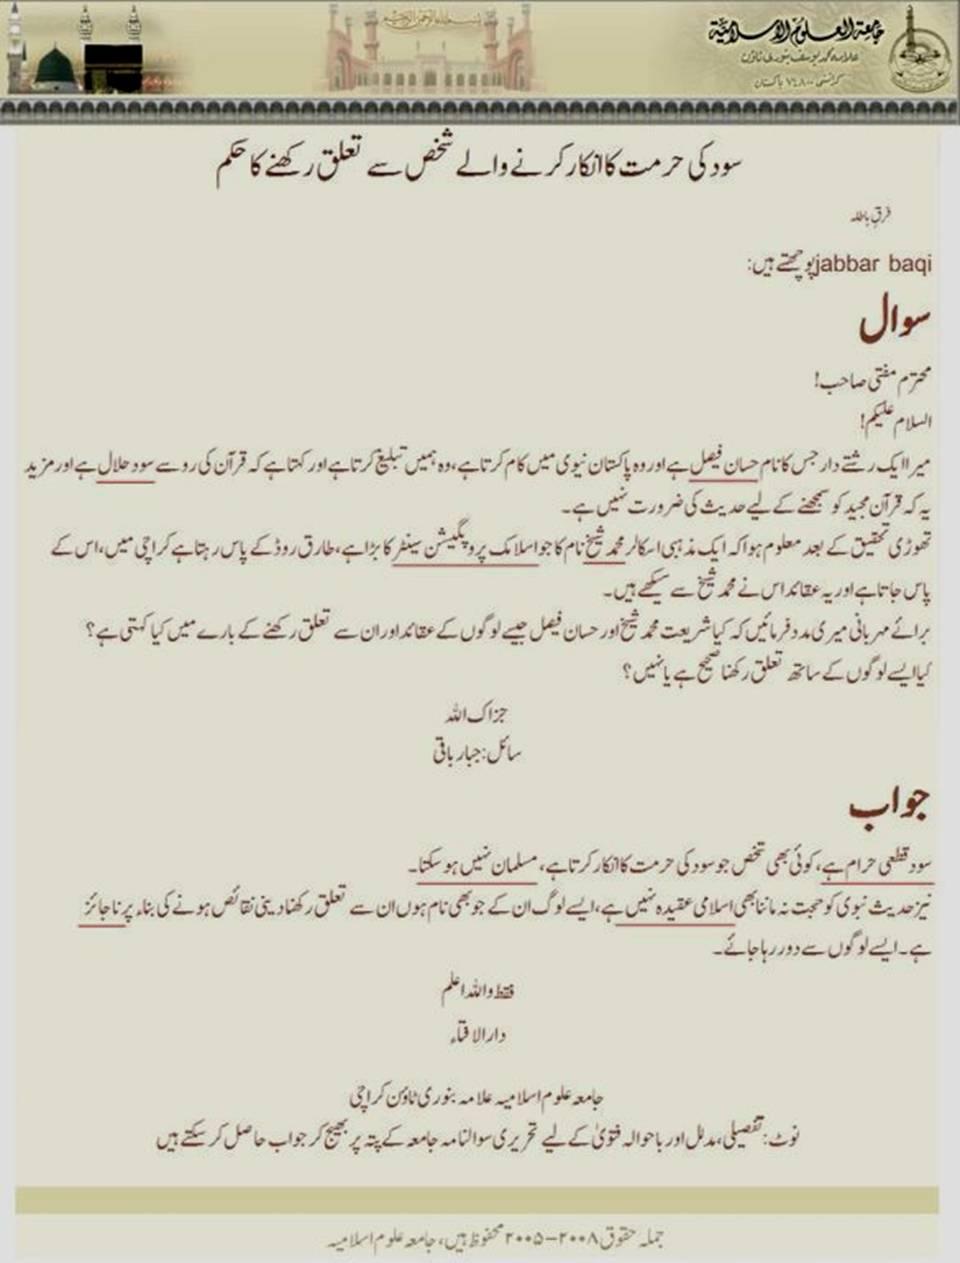 بسم اللہ الرحمن الرحیم
جامعة العلوم الاسلامیة
علامہ محمد یوسف بنوری ٹاؤن
کراچی ۷۴۸۰۰ پاکستان
سود کی حرمت کا انکار کرنے والے شخص سے تعلق رکھنے کا حکم
فرقِ باطلہ
jabbar baqi پوچھتے ہیں:
سوال
محترم مفتی صاحب!
السلام علیکم!
میرا ایک رشتے دار جس کا نام حسان فیصل ہے اور وہ پاکستان نیوی میں کام کرتا ہے، وہ ہمیں تبلیغ کرتا ہے اور کہتا ہے کہ قرآن کی رو سے سود حلال ہے اور مزید
یہ کہ قرآن مجید کو سمجھنے کے لیے حدیث کی ضرورت نہیں ہے۔
تھوڑی تحقیق کے بعد معلوم ہوا کہ ایک مذہبی اسکالر محمد شیخ نام کا جو اسلامک پروپگیشن سینٹر کا بڑا ہے، طارق روڈ کے پاس رہتا ہے کراچی میں، اس کے
پاس جاتا ہے اور یہ عقائد اس نے محمد شیخ سے سیکھے ہیں۔
برائے مہربانی میری مدد فرمائیں کہ کیا شریعت محمد شیخ اور حسان فیصل جیسے لوگوں کے عقائد اور ان سے تعلق رکھنے کے بارے میں کیا کہتی ہے؟
کیا ایسے لوگوں کے ساتھ تعلق رکھنا صحیح ہے یا نہیں؟
جزاک اللہ
سائل: جبار باقی
جواب
سود قطعی حرام ہے، کوئی بھی شخص جو سود کی حرمت کا انکار کرتا ہے، مسلمان نہیں ہو سکتا۔
نیز حدیث نبوی کو حجت نہ ماننا بھی اسلامی عقیدہ نہیں ہے، ایسے لوگ ان کے جو بھی نام ہوں ان سے تعلق رکھنا دینی نقائص ہونے کی بناء پر ناجائز
ہے۔ ایسے لوگوں سے دور رہا جائے۔
فقط واللہ اعلم
دارالافتاء
جامعہ علوم اسلامیہ علامہ بنوری ٹاؤن کراچی
نوٹ: تفصیلی، مدلل اور باحوالہ فتویٰ کے لیے تحریری سوالنامہ جامعہ کے پتہ پر بھیج کر جواب حاصل کر سکتے ہیں
جملہ حقوق ۲۰۰۸-۲۰۰۵ محفوظ ہیں، جامعہ علوم اسلامیہ